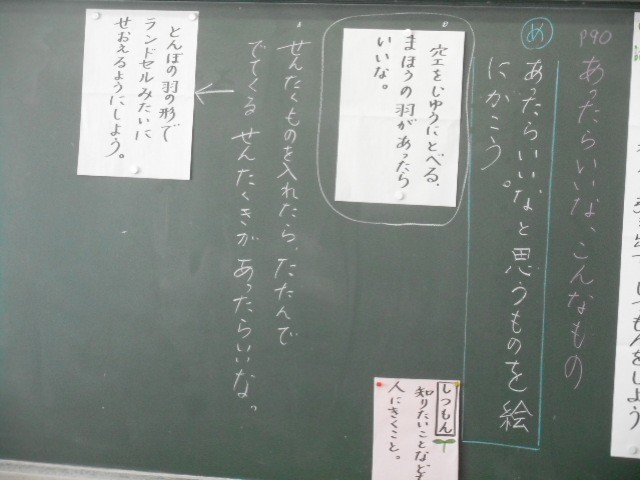 P90
あったらいいな、こんなもの
め
あったらいいなと思うものを絵
にかこう。
空をじゆうにとべる、
まほうの羽があったら
いいな。
しつもん
知りたいことなどを
人にきくこと。
・せんたくものを入れたら、たたんで
でてくるせんたくきがあったらいいな。
とんぼの羽の形で
ランドセルみたいに
せおえるようにしよう。
しつもんをしよう